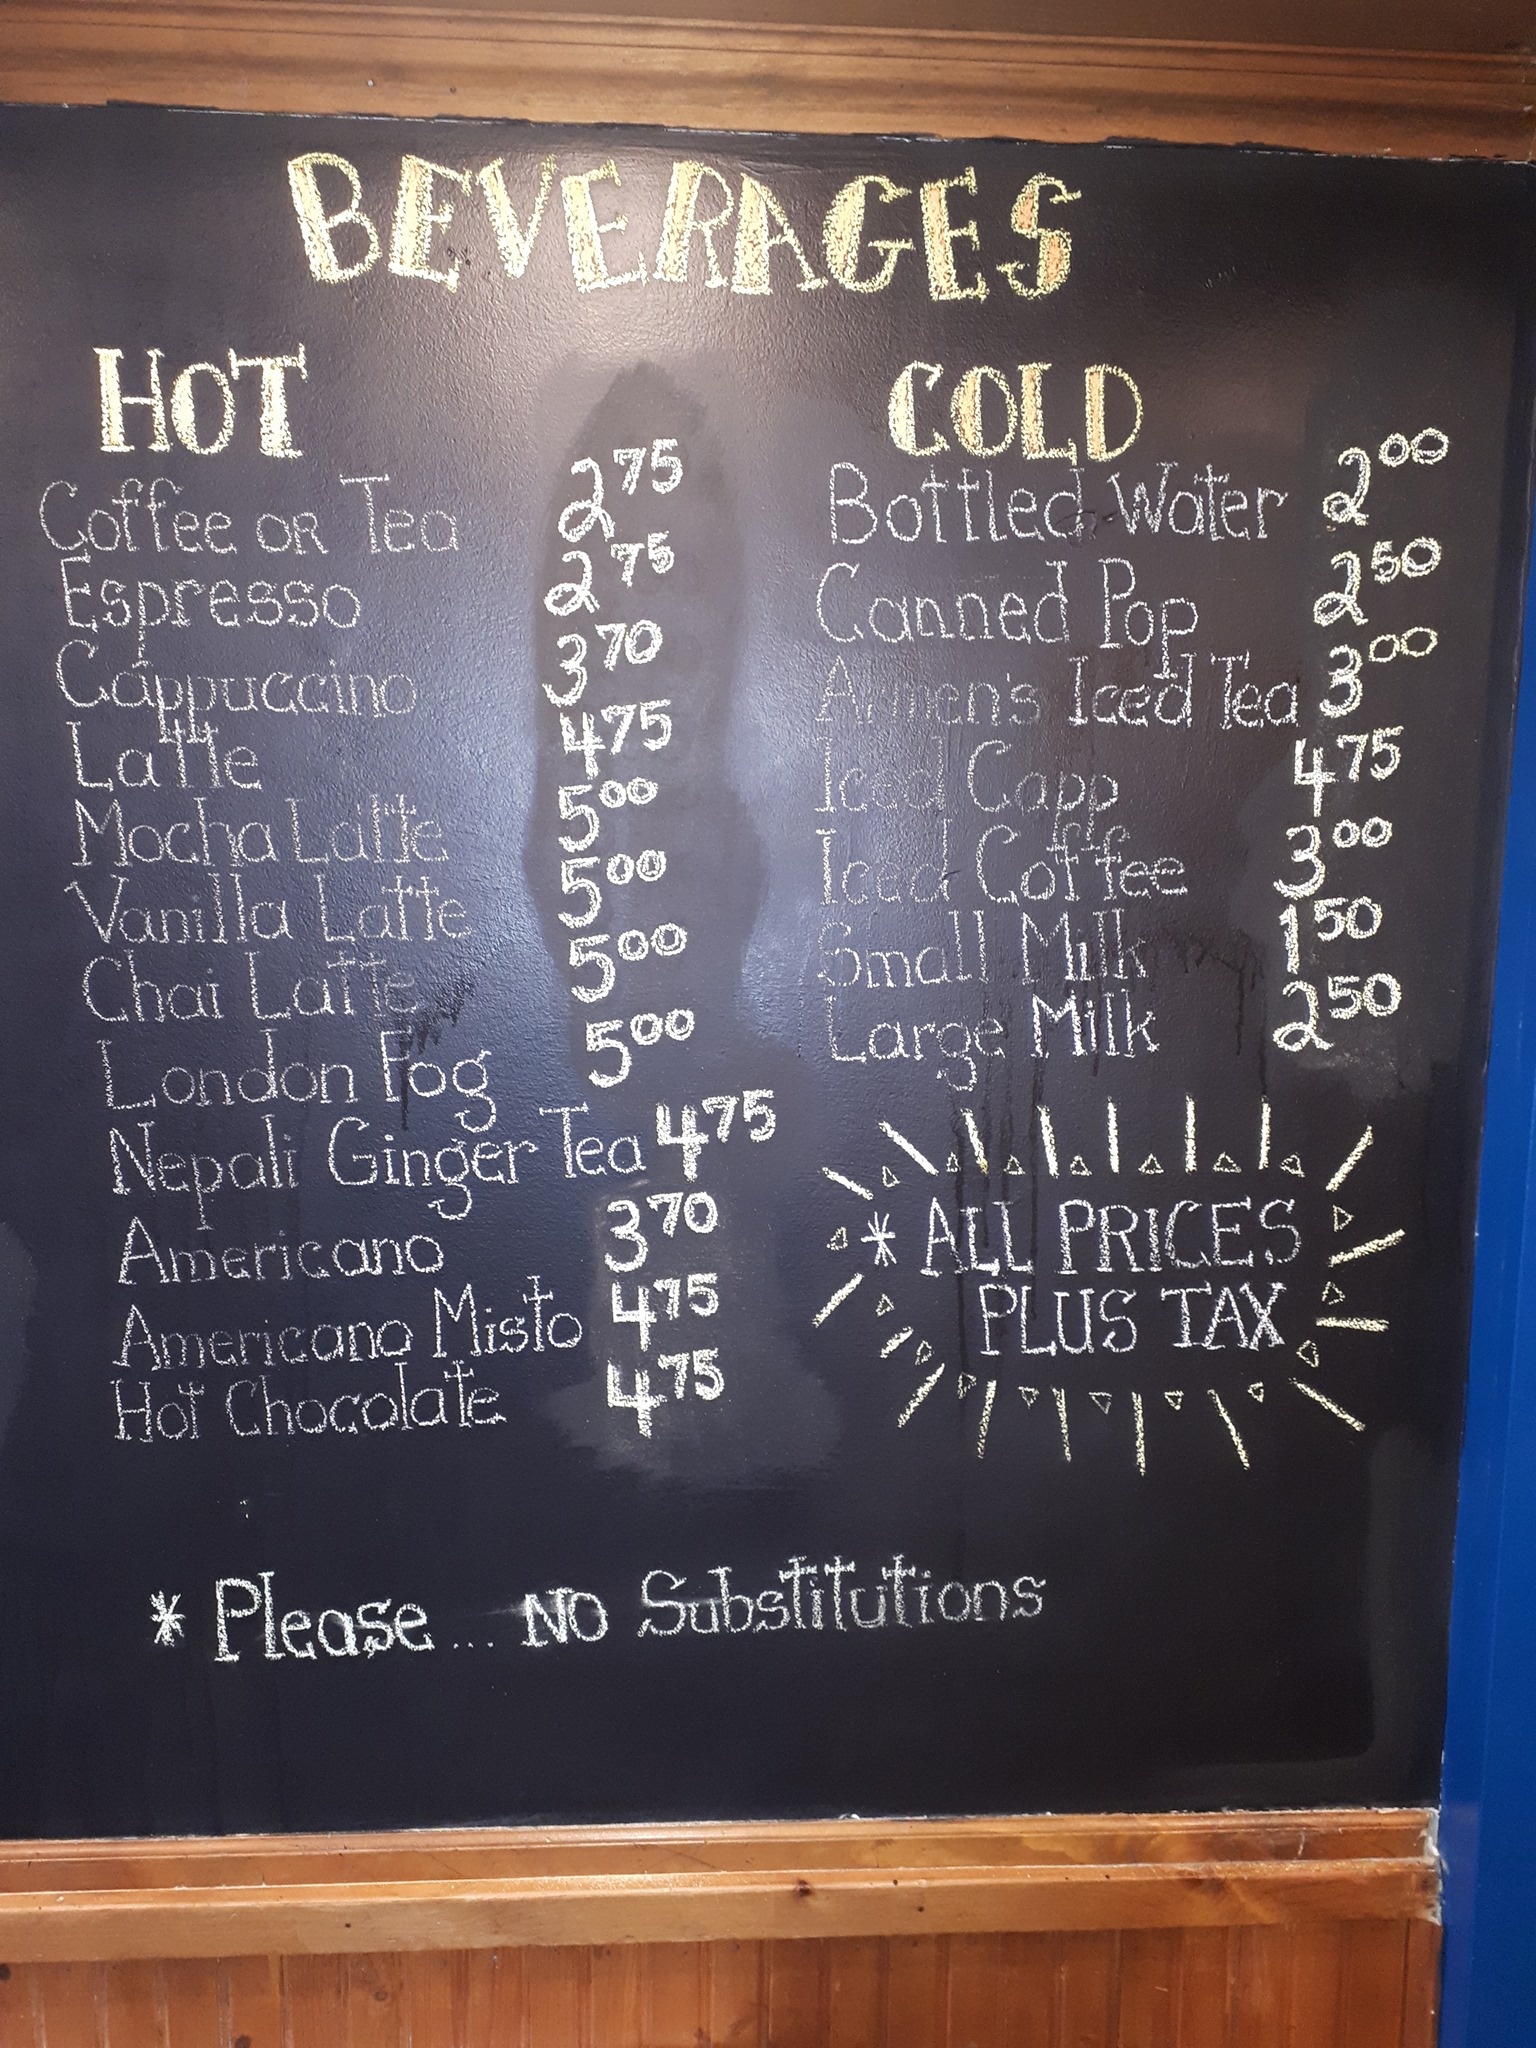 BEVERAGES
HOT
Coffee OR Tea 2 75
Espresso 2 75
Cappuccino 3 70
Latte 4 75
Mocha Latte 5 00
Vanilla Latte 5 00
Chai Latte 5 00
London Fog 5 00
Nepali Ginger Tea 4 75
Americano 3 70
Americano Misto 4 75
Hot Chocolate 4 75
COLD
Bottled Water 2 00
Canned Pop 2 50
Armen's Iced Tea 3 00
Iced Capp 4 75
Iced Coffee 3 00
Small Milk 1 50
Large Milk 2 50
* ALL PRICES
PLUS TAX
* Please... NO Substitutions